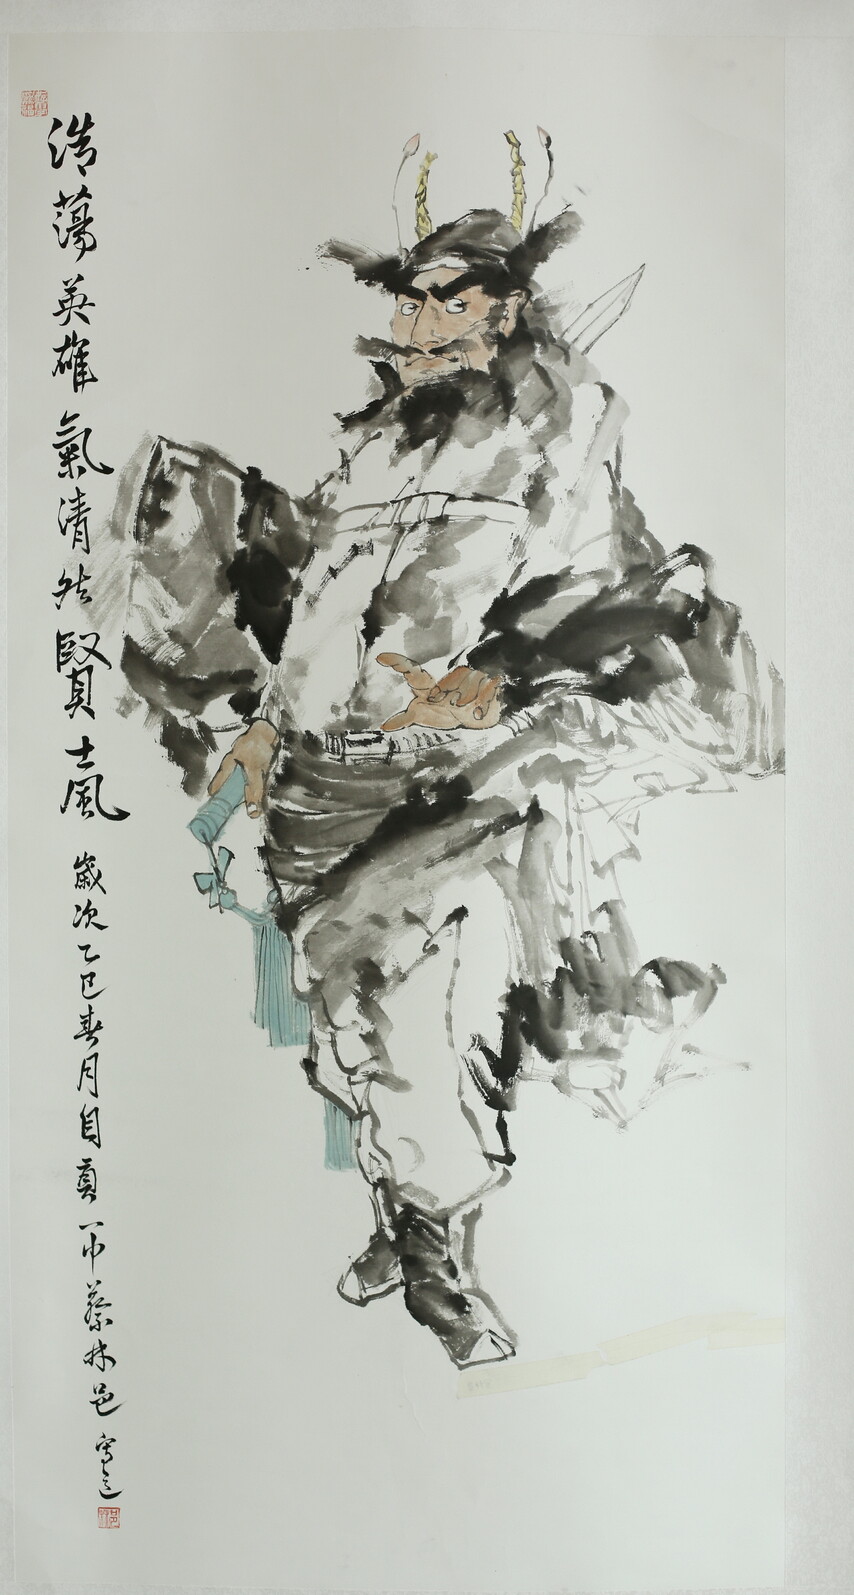 浩蕩英雄氣清然賢士風
歲次乙巳春月自真一巾蔡林邑寫意